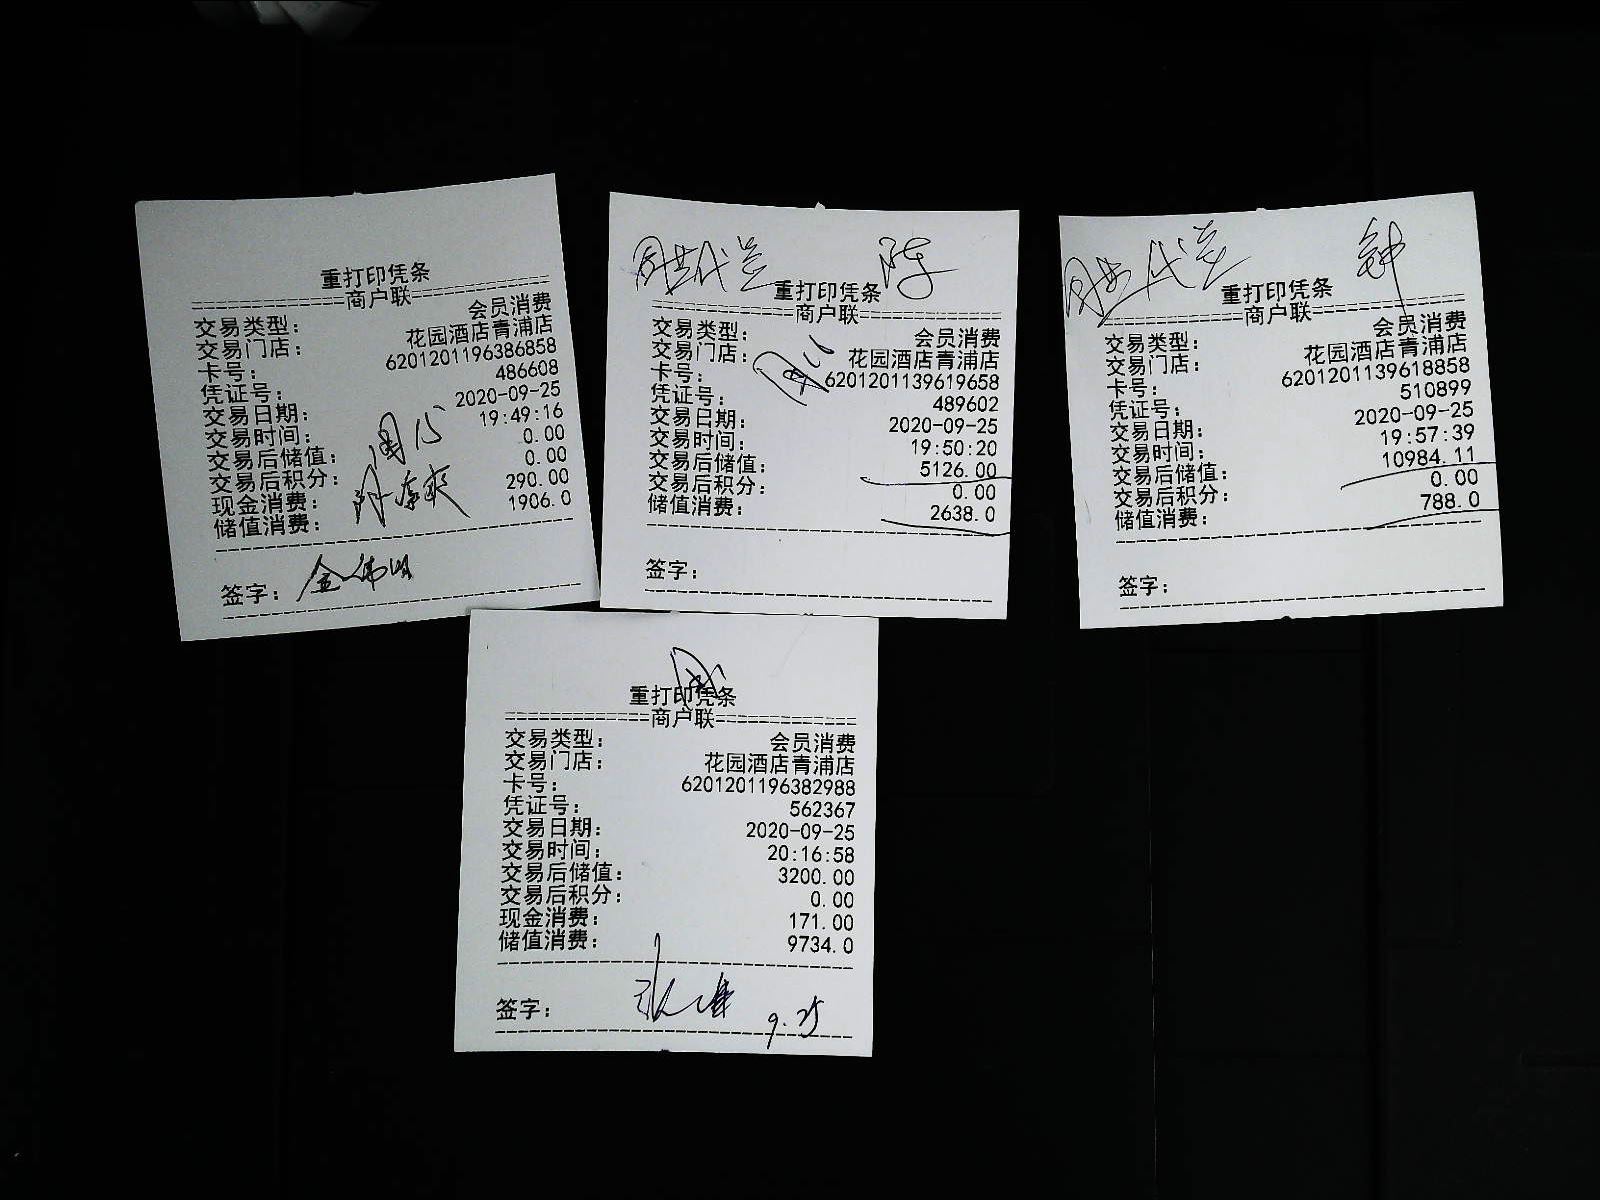 重打印凭条
商户联
交易类型： 会员消费
交易门店： 花园酒店青浦店
卡号： 6201201196386858
凭证号： 486608
交易日期： 2020-09-25
交易时间： 19:49:16
交易后储值： 0.00
交易后积分： 0.00
现金消费： 290.00
储值消费： 1906.0
签字：
陈
重打印凭条
商户联
交易类型： 会员消费
交易门店： 花园酒店青浦店
卡号： 6201201139619658
凭证号： 489602
交易日期： 2020-09-25
交易时间： 19:50:20
交易后储值： 5126.00
交易后积分： 0.00
储值消费： 2638.0
签字：
钟
重打印凭条
商户联
交易类型： 会员消费
交易门店： 花园酒店青浦店
卡号： 6201201139618858
凭证号： 510899
交易日期： 2020-09-25
交易时间： 19:57:39
交易后储值： 10984.11
交易后积分： 0.00
储值消费： 788.0
签字：
重打印凭条
商户联
交易类型： 会员消费
交易门店： 花园酒店青浦店
卡号： 6201201196382988
凭证号： 562367
交易日期： 2020-09-25
交易时间： 20:16:58
交易后储值： 3200.00
交易后积分： 0.00
现金消费： 171.00
储值消费： 9734.0
签字： 9.25